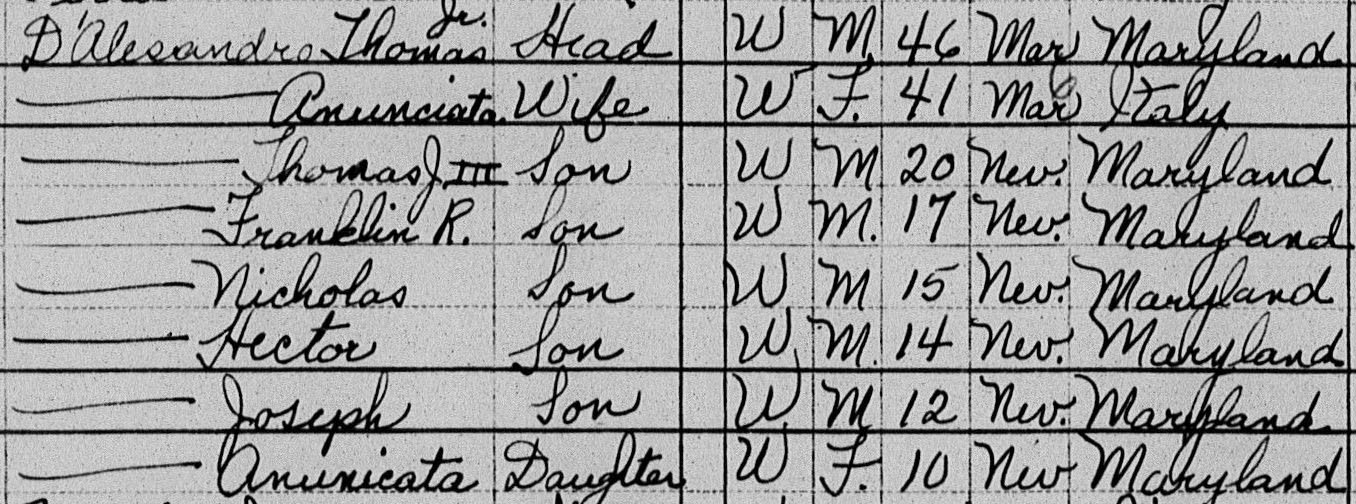 D'Alesandro Thomas Jr. Head W M. 46 Mar Maryland
Anunciata. Wife W F. 41 Mar Italy
Thomas J III Son W M. 20 Nev. Maryland
Franklin R. Son W M. 17 Nev. Maryland
Nicholas Son W M 15 Nev. Maryland
Hector Son W M. 14 Nev. Maryland
Joseph Son W M 12 Nev. Maryland
Anunicata Daughter W F. 10 Nev Maryland